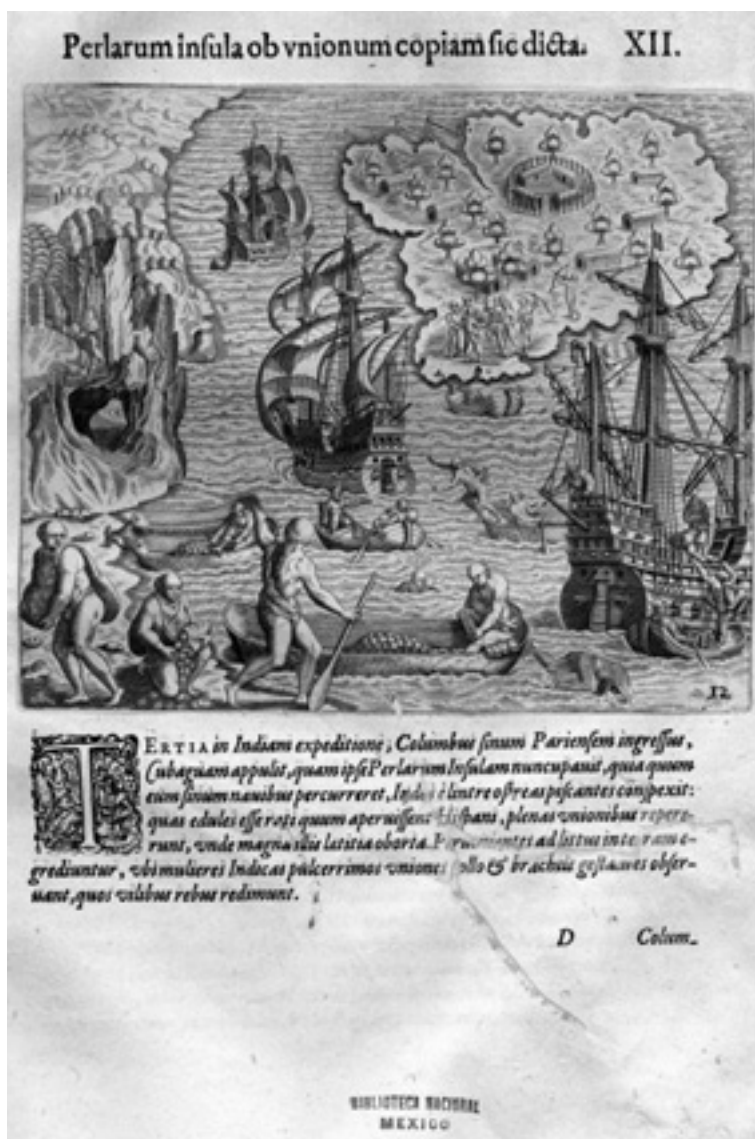 Perlarum inſula ob vnionum copiam ſic dicta. XII.
12
TERTIA in Indiam expeditione, Columbus ſinum Parienſem ingreſſus,
Cubaguam appulit, quam ipſe Perlarum Inſulam nuncupauit, quia quum
eum ſinum nauibus percurreret, Indos è lintre oſtreas piſcantes conſpexit:
quas edules eſſe rati quum aperuiſſent Hiſpani, plenas vnionibus repere-
runt, vnde magna illis lætitia oborta. ad littus in terram e-
grediuntur, vbi mulieres Indicas pulcerrimos vniones collo & brachiis geſtantes obſer-
uant, quos vilibus rebus redimunt.
D Colum-
BIBLIOTECA NACIONAL
MEXICO